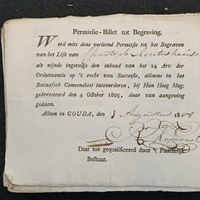 Permissie-Billet tot Begraving.
Word mits deze verleend Permissie tot het Begraven
van het Lijk van Christoph
als zijnde ingevolge den inhoud van het 24 Art: der
Ordonnantie op 't recht van Successie, alomme in het
Bataafsch Gemeenebest intevorderen, bij Hun Hoog Mog:
gearresteerd den 4 October 1805. daar van aangeving
gedaan.
Actum in GOUDA, den 3 Augustus 180
Daar toe gequalificeerd door 't Plaatselijk
Bestuur.